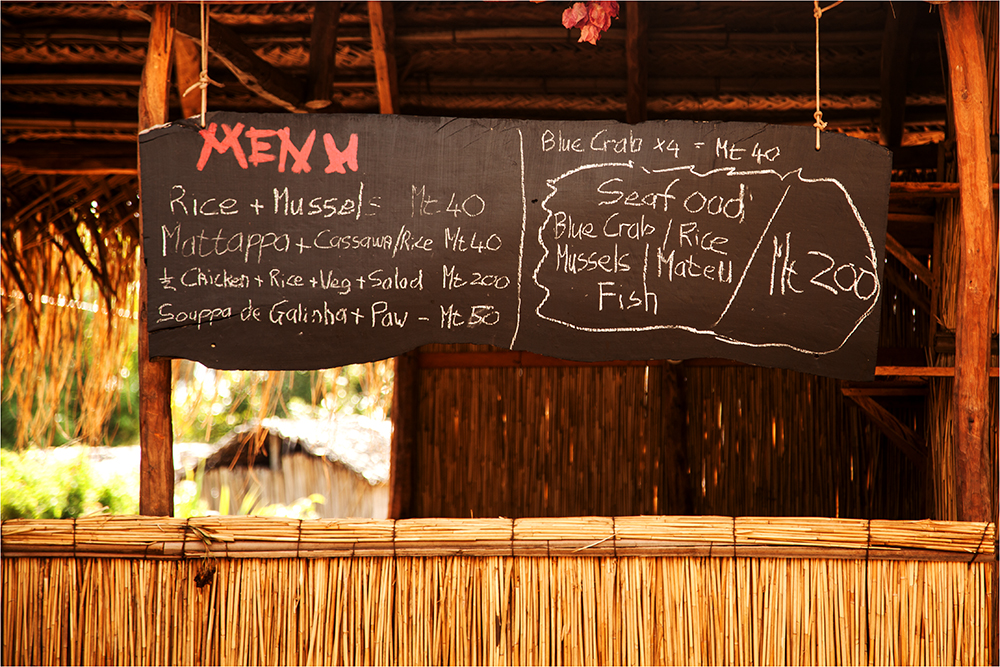 MENU
Rice + Mussels Mt 40
Mattappa + Cassawa/Rice Mt 40
½ Chicken + Rice + Veg + Salad Mt 200
Souppa de Galinha + Paw - Mt 50
Blue Crab x4 - Mt 40
Seafood
Blue Crab / Rice
Mussels / Mateu
Fish
Mt 200